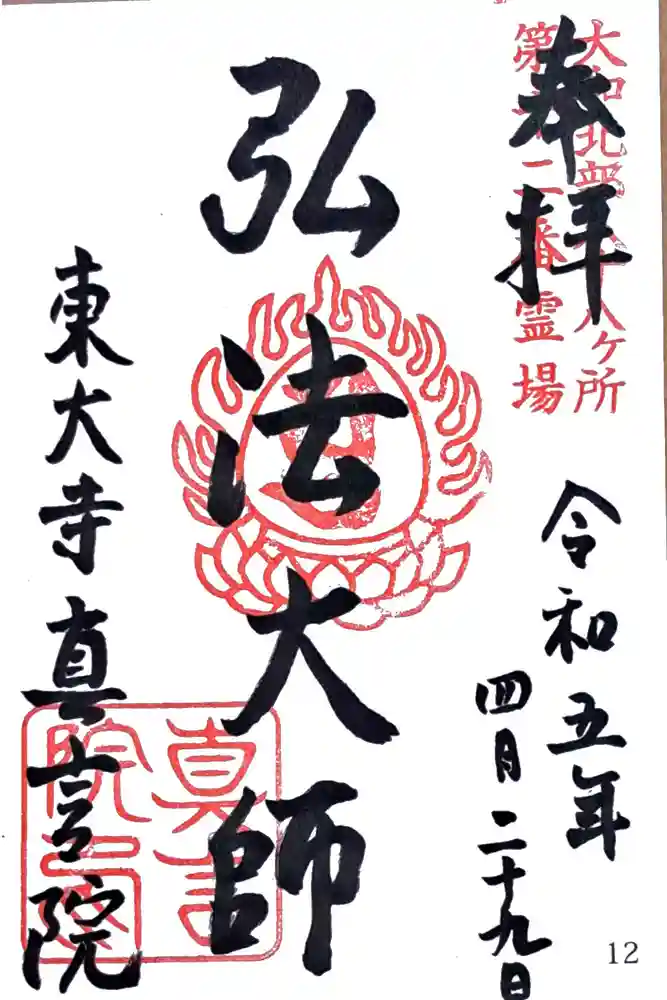 奉拝
大和北部八十八ヶ所
第十二番霊場
令和五年
四月二十九日
弘法大師
東大寺真言院
12